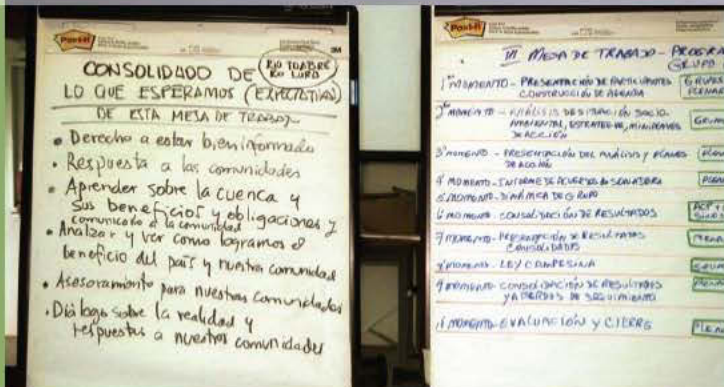 Post-it
3M
CONSOLIDADO DE (RIO TOABRE
RIO LURA)
LO QUE ESPERAMOS (EXPECTATIVAS)
DE ESTA MESA DE TRABAJO
• Derecho a estar bien informado
• Respuesta a las comunidades
• Aprender sobre la cuenca y
sus beneficios y obligaciones y
comunicarlo a la comunidad
• Analizar y ver como logramos el
beneficio del país y nuestra comunidad
• Asesoramiento para nuestras comunidades
• Diálogo sobre la realidad y
respuestas a nuestras comunidades
Post-it
VI MESA DE TRABAJO - PROGRA
GRUPO
1er MOMENTO - PRESENTACIÓN DE PARTICIPANTES
CONSTRUCCIÓN DE AGENDA
GRUPOS
PLENAR
2º MOMENTO - ANÁLISIS DE SITUACIÓN SOCIO-
AMBIENTAL, ESTRATEGIAS, MINIPLANES
DE ACCIÓN
3º MOMENTO - PRESENTACIÓN DEL ANÁLISIS Y PLANES
DE ACCIÓN
4º MOMENTO - INFORME DE ACUERDOS
5º MOMENTO - DINÁMICA DE GRUPO
6º MOMENTO - CONSOLIDACIÓN DE RESULTADOS
7 MOMENTO - PRESENTACIÓN DE RESULTADOS
CONSOLIDADOS
MOMENTO - LEY CAMPESINA
9 MOMENTO - CONSOLIDACIÓN DE RESULTADOS
Y ACUERDOS DE SEGUIMIENTO
MOMENTO - EVALUACIÓN Y CIERRE